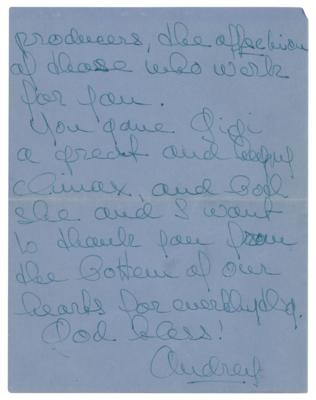 producers, the affection
of those who work
for you.
You gave Gigi
a great and happy
climax, and both
she and I want
to thank you from
the bottom of our
hearts for everything.
God bless!
Audrey